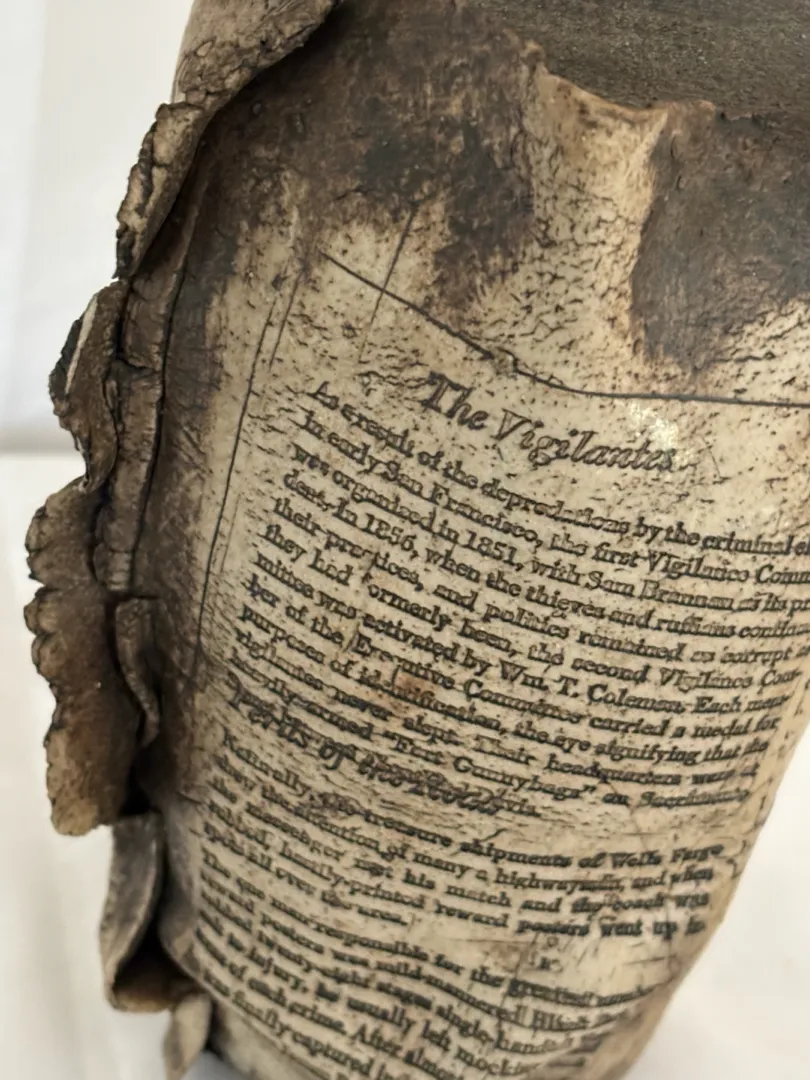 The Vigilantes
As a result of the depredations by the criminal
in early San Francisco, the first Vigilance Comm
was organized in 1851, with Sam Brannan as its
dent. In 1856, when the thieves and ruffians
their practices, and politics remained as corrupt
they had formerly been, the second Vigilance Com-
mittee was activated by Wm. T. Coleman. Each mem-
ber of the Executive Committee carried a medal for
purposes of identification, the eye signifying that the
vigilantes never slept. Their headquarters were at
heavily-armed "Fort Gunnybags" on Sacramento
Perils of the
Naturally, the treasure shipments of Wells Fargo
drew the attention of many a highwayman, and when
the messenger met his match and the coach was
robbed, hastily-printed reward posters went up in
spots all over the area.
The one man responsible for the greatest
reward posters was mild-mannered Black
robbed twenty-eight stages single-handed
to injury, he usually left
of each crime. After almost
was finally captured